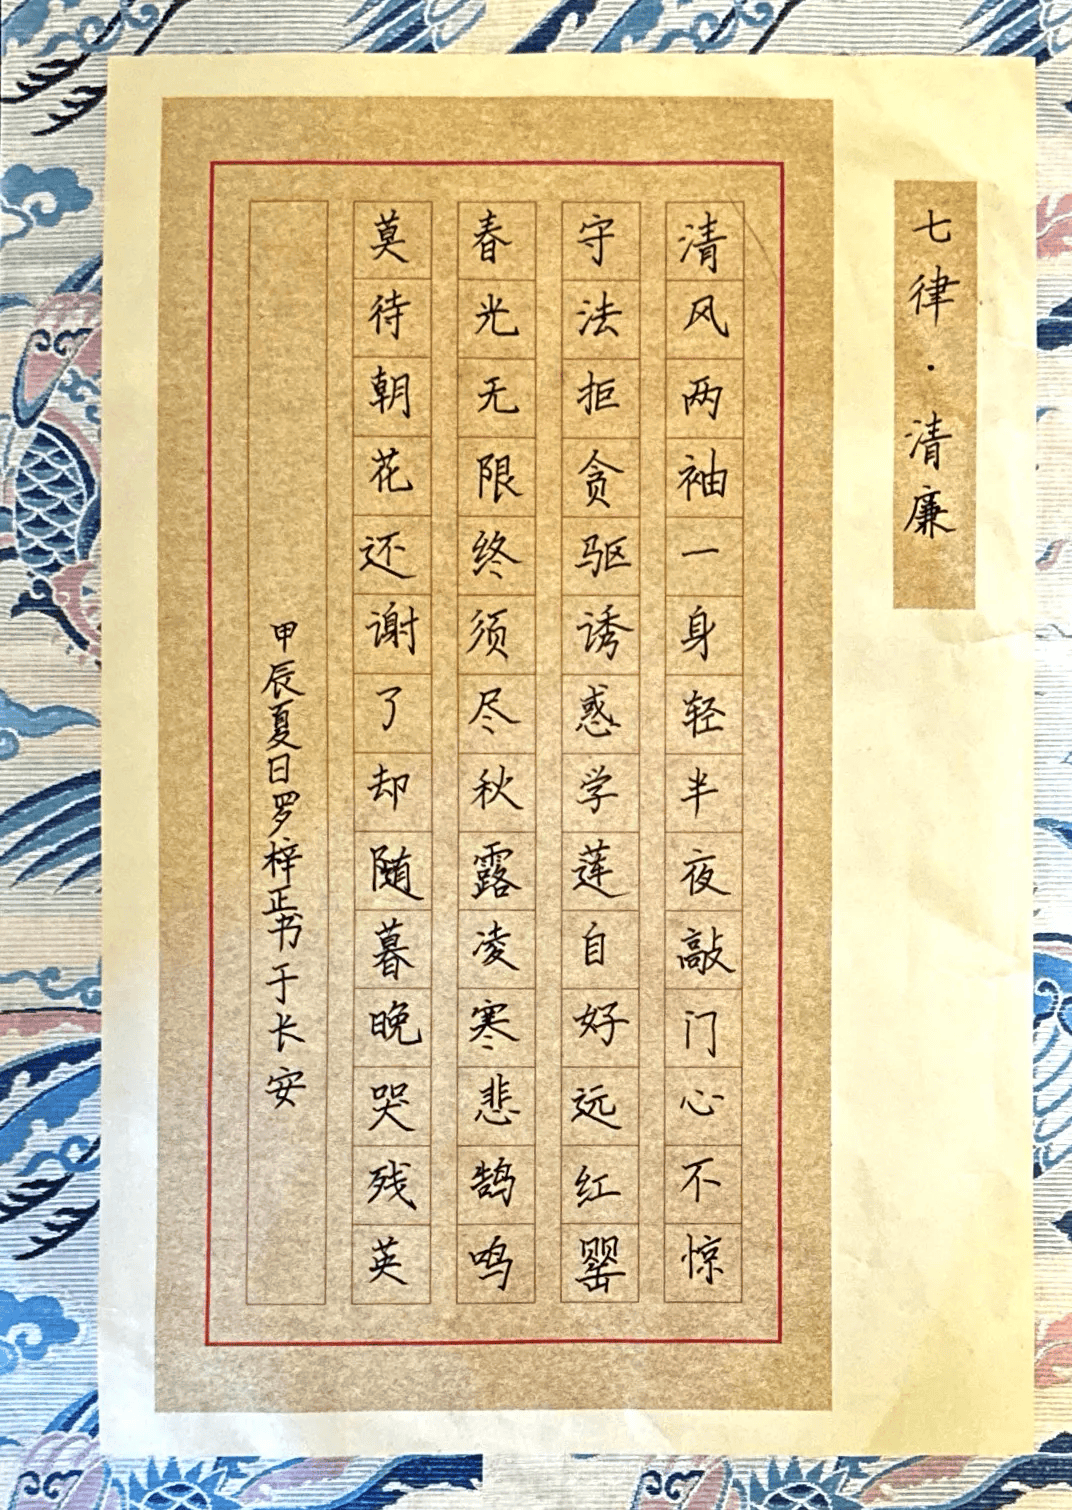 七律·清廉
清风两袖一身轻半夜敲门心不惊
守法拒贪驱诱惑学莲自好远红罂
春光无限终须尽秋露凌寒悲鹄鸣
莫待朝花还谢了却随暮晚哭残英
甲辰夏日罗梓正书于长安